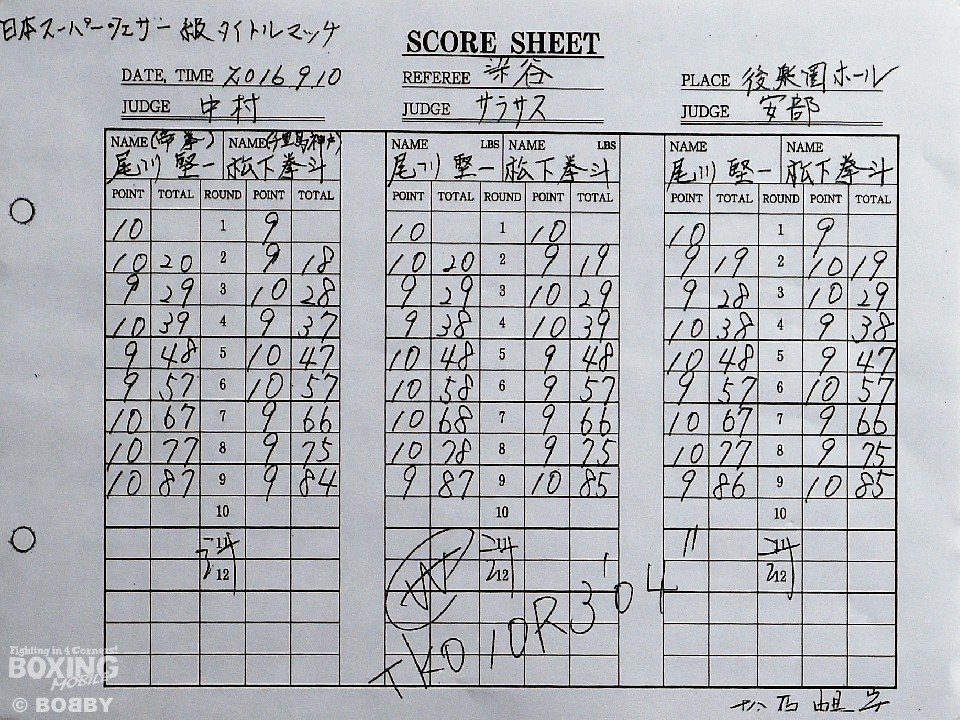 日本スーパーフェザー級タイトルマッチ
SCORE SHEET
DATE, TIME 2016 9.10 REFEREE 染谷 PLACE 後楽園ホール
JUDGE 中村 JUDGE サラサス JUDGE 安部
NAME (帝拳) NAME (千里馬神戸) NAME LBS NAME LBS NAME NAME
尾川 堅一 松下拳斗 尾川 堅一 松下拳斗 尾川 堅一 松下拳斗
POINT TOTAL ROUND POINT TOTAL POINT TOTAL ROUND POINT TOTAL POINT TOTAL ROUND POINT TOTAL
10 1 9 10 1 10 10 1 9
10 20 2 9 18 10 20 2 9 19 9 19 2 10 19
9 29 3 10 28 9 29 3 10 29 9 28 3 10 29
10 39 4 9 37 9 38 4 10 39 10 38 4 9 38
9 48 5 10 47 10 48 5 9 48 10 48 5 9 47
9 57 6 10 57 10 58 6 9 57 9 57 6 10 57
10 67 7 9 66 10 68 7 9 66 10 67 7 9 66
10 77 8 9 75 10 78 8 9 75 10 77 8 9 75
10 87 9 9 84 9 87 9 10 85 9 86 9 10 85
10 10 10
11 11 11 11
12 12 12
W
TKO 10R 3'04
Fighting in 4 Corners!
BOXING
MOBILE
© BOBBY